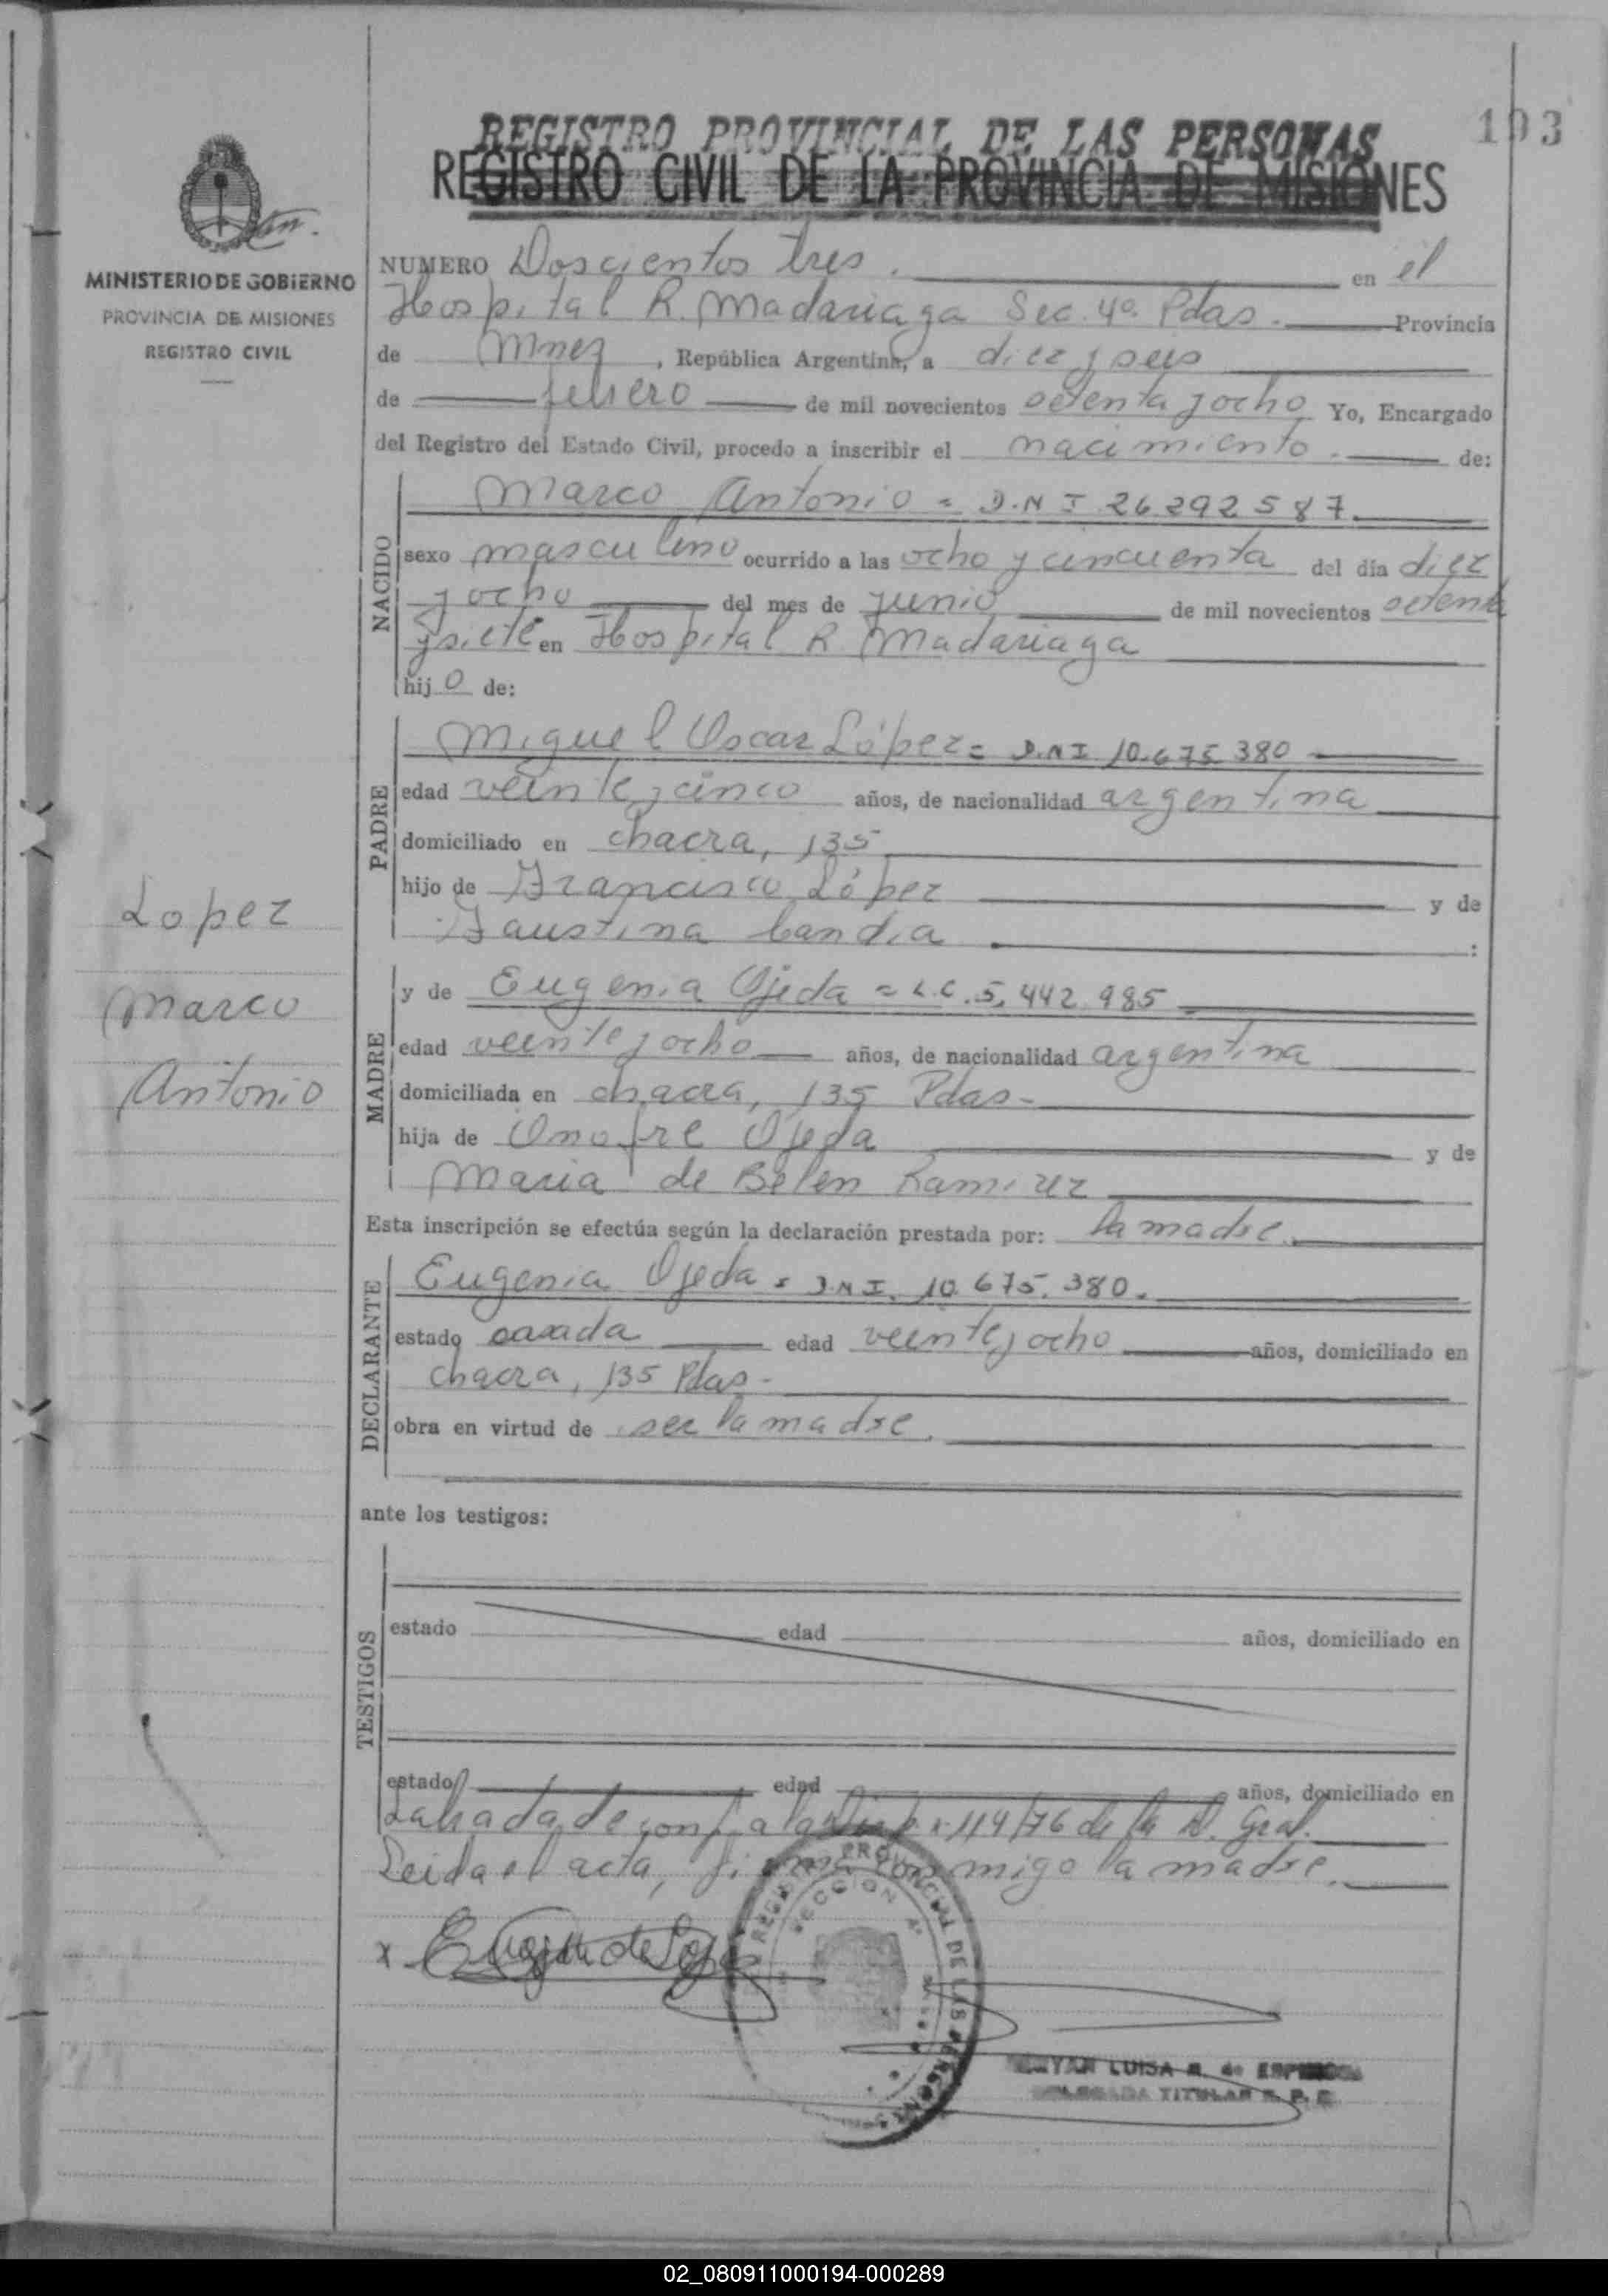 REGISTRO PROVINCIAL DE LAS PERSONAS
REGISTRO CIVIL DE LA PROVINCIA DE MISIONES
193
MINISTERIO DE GOBIERNO
PROVINCIA DE MISIONES
REGISTRO CIVIL
NUMERO Doscientos tres. en el
Hospital R. Madariaga Sec. 4º Pdas. Provincia
de Mnes, República Argentina, a diez y seis
de febrero de mil novecientos setenta y ocho Yo, Encargado
del Registro del Estado Civil, procedo a inscribir el nacimiento. de:
NACIDO
Marco Antonio = D.N I 26.292587.
sexo masculino ocurrido a las ocho y cincuenta del día diez
y ocho del mes de junio de mil novecientos setenta
y siete en Hospital R. Madariaga
hij o de:
PADRE
Miguel Oscar López = D.N I 10.675 380
edad veinte y cinco años, de nacionalidad argentina
domiciliado en chacra, 135
hijo de Francisco López y de
Faustina Candia :
Lopez
Marco
Antonio
MADRE
y de Eugenia Ojeda = L.C. 5.442.985
edad veinte y ocho años, de nacionalidad argentina
domiciliada en chacra, 135 Pdas-
hija de Onofre Ojeda y de
Maria de Belen Ramirez
Esta inscripción se efectúa según la declaración prestada por: la madre.
DECLARANTE
Eugenia Ojeda = D.N I. 10.675.380.
estado casada edad veinte y ocho años, domiciliado en
chacra, 135 Pdas-
obra en virtud de ser la madre.
ante los testigos:
TESTIGOS
estado edad años, domiciliado en
estado edad años, domiciliado en
Labrada de conf. a la Disp. 114/76 de la D. Gral.
Leida el acta, firma conmigo la madre.
x Eugenia de Lopez
REGISTRO PROVINCIAL DE LAS PERSONAS
SECCION 4ª
LUISA R. de ESPINOZA
DELEGADA TITULAR R. P. P.
02_080911000194-000289